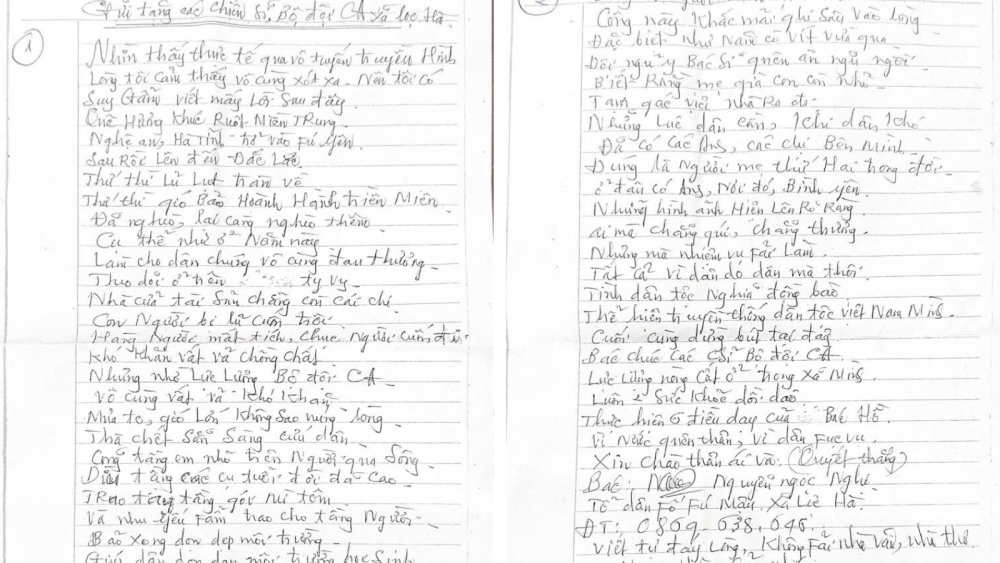 Gửi tặng các chiến sĩ, Bộ đội CA xã lọc Hà
1
Nhìn thấy thực tế qua vô tuyến truyền Hình
Lòng tôi cảm thấy vô cùng xót xa. Nên tôi có
Suy Gẫm viết mấy Lời Sau đây
Quê Hương Khúc Ruột Miền TRung
Nghệ an, Hà Tĩnh trở vào Fú yên
Sau Rốt Lên đến Đắc Lắc
Thứ thì Lũ Lụt tràn về
Thứ thì gió Bảo Hoành Hành triền Miên
Đã nghèo, lại càng nghèo thêm
Cụ thể như ở Năm nay
Làm cho dân chúng vô cùng đau thương
Theo dõi ở trên ty vy
Nhà cửa tài Sản chẳng còn cái chi
Con Người bị lũ cuốn trôi
Hàng Người mất tích, chục Người cuốn đi
Khó Khăn vất vả chồng chất
Nhưng nhờ Lực Lượng Bộ đội CA
Vô cùng vất vả Khó Khăn
Mưa to, gió Lớn Không Sao núng Lòng
Thà chết Sẵn Sàng cứu dân
Cõng từng em nhỏ trên Người qua Sông
Dìu từng các cụ tuổi đời đã cao
TRao từng từng gói mì tôm
Và nhu yếu Fẩm trao cho từng Người
Bão Xong dọn dẹp môi trường
Giúp dân dọn dẹp môi trường học Sinh
2
Công này Khắc mãi ghi Sâu vào lòng
Đặc biệt như Năm cô vít vừa qua
Đội ngũ y Bác Sĩ quên ăn ngủ ngồi
Biết Rằng mẹ già con còn nhỏ
Tạm gác việc nhà Ra đi
Những Lúc dân cần, Khi dân Khó
Đã có các Ans, các chị Bên Mình
Đúng là Người mẹ thứ Hai trong đời
ở đâu có Ans, Nơi đó, Bình yên
Những hình ảnh Hiện Lên Rõ Ràng
ai mà chẳng quí, chẳng thương
Nhưng mà nhiệm vụ Fải Làm
Tất cả vì dân do dân mà thôi
Tình dân tộc Nghĩa đồng bào
Thể hiện truyền thống dân tộc việt Nam Mình
Cuối cùng dừng bút tại đây
Bác chúc các CSĩ Bộ đội CA
Lực Lượng nòng Cốt ở trong Xã Mình
Luôn 2 Sức Khoẻ dồi dào
Thực hiện 6 điều dạy của Bác Hồ
Vì Nước quên thân, vì dân Fục vụ
Xin chào thân ái và (Quyết thắng)
Bác: Nguyễn ngọc Nghi
Tổ dân Fố Fú Mậu, Xã Lọc Hà
ĐT: 0869.638.646
Viết từ đáy Lòng, Không Fải nhà văn, nhà thơ